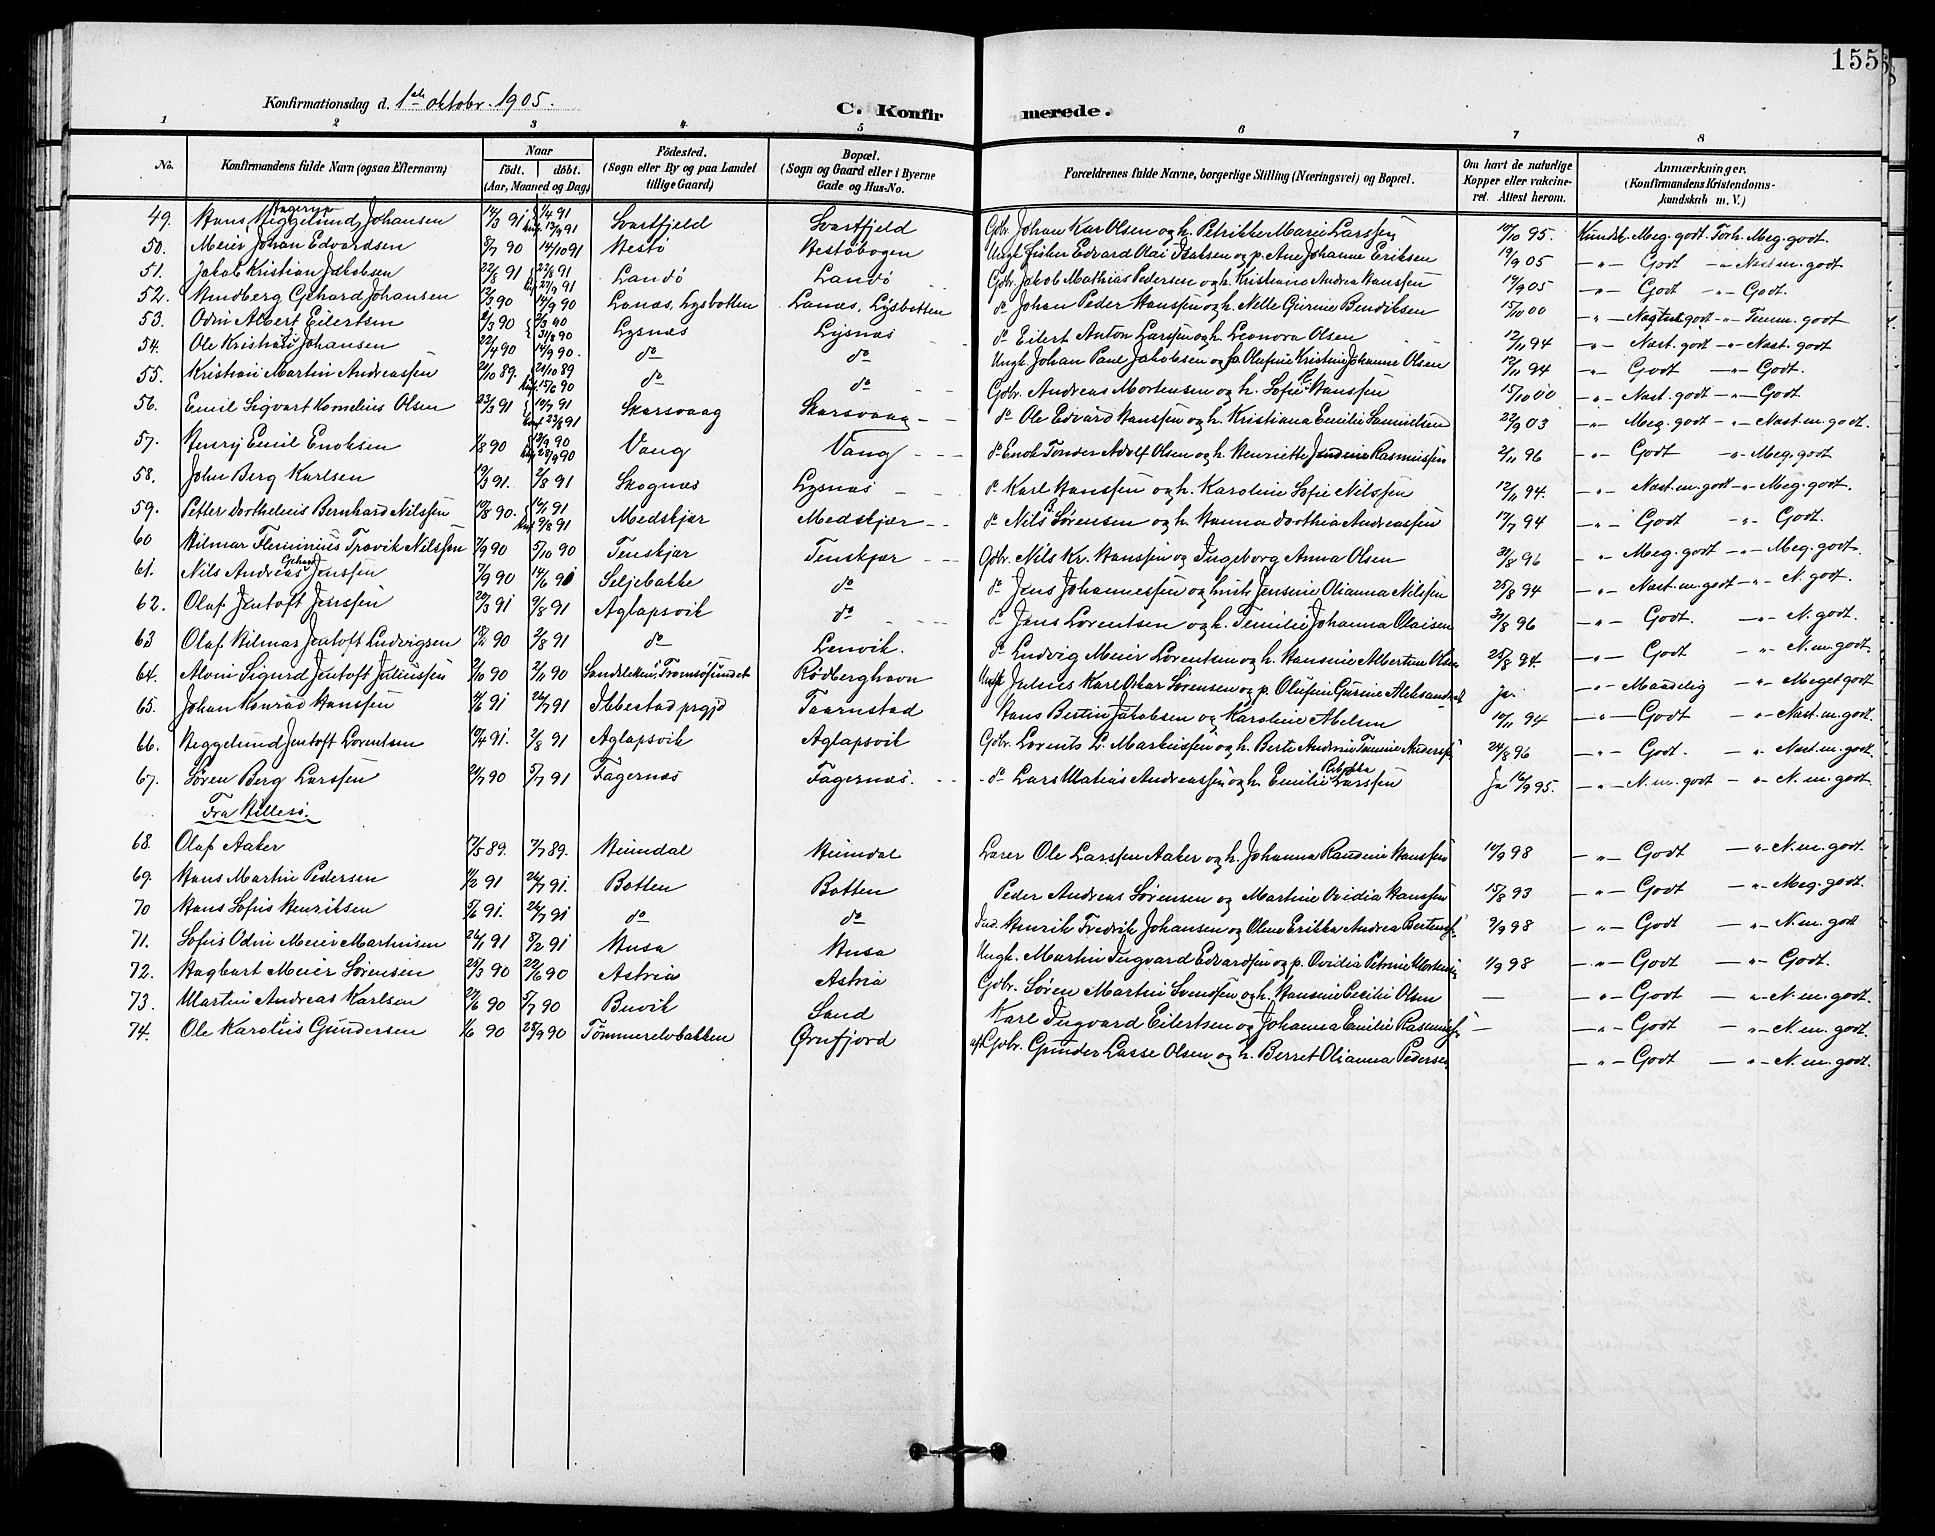 155
Konfirmationsdag d. 1ste oktobr. 1905.
C. Konfirmerede.
1 2 3 4 5 6 7 8
No. Konfirmandens fulde Navn (ogsaa Efternavn) Naar født. døbt. (Aar, Maaned og Dag) Fødested. (Sogn eller By og paa Landet tillige Gaard) Bopæl. (Sogn og Gaard eller i Byerne Gade og Hus-No. Forældrenes fulde Navne, borgerlige Stilling (Næringsvei) og Bopæl. Om havt de naturlige Kopper eller vakcineret. Attest herom. Anmærkninger. (Konfirmandens Kristendomskundskab m. V.)
49. Hans Hagerup Heggelund Johansen 14/3 91 Svartfjeld Svartfjeld Gdbr. Johan Kar Olsen og h. Petrikke Marie Larssen 10/10 95. Kundsk. Meg. godt. Forh. Meg. godt.
50. Meier Johan Edvardsen 8/7 90 14/10 91 Hestø Hestøbogen Ungk. fisker Edvard Olai Isaksen og p. Ane Johanne Eriksen 19/9 05 — " — Godt — " — Nast m. godt
51. Jakob Kristian Jakobsen 22/8 91 Landø Landø Gdbr. Jakob Mathias Pedersen og h. Kristiane Andrea Hanssen 19/9 05 — " — Godt — " — Godt.
52. Hindberg Gehard Johansen 12/2 90 14/9 90 Lanæs, Lysbotten Lanæs, Lysbotten do Johan Peder Hanssen og h. Nelle Gurine Bendiksen 15/10 00 — " — godt — " — Temm. godt
53. Odin Albert Eilertsen 2/3 90 31/8 90 Lysnæs Lysnæs do Eilert Anton Larssen og h. Leonora Olsen 12/11 94 — " — Nast. godt — " — Nast. godt
54. Ole Kristian Johansen 22/4 90 14/9 90. do do Ungk. Johan Paul Jakobsen og p. Olufine Kristine Johanne Olsen 12/11 94 — " — Godt — " — Godt.
55. Kristian Martin Andreassen 21/10 89. do do Gdbr. Andreas Mortensen og h. Sofie P. Hanssen 15/10 00 — " — Nast. godt — " — Godt.
56. Emil Sigvart Kornelius Olsen 23/3 91 Skarsvaag Skarsvaag do Ole Edvard Hanssen og h. Kristiana Emilie Samuelsen 22/9 03 — " — Meg. godt — " — Nast. m. godt.
57. Henry Emil Enoksen 1/8 90 Vang Vang do Enok Tønder Adolf Olsen og h. Henriette Jendine Rasmussen 2/11 96 — " — Godt — " — Meg. godt
58. John Berg Karlsen 19/3 91. 2/8 91 Skognæs Lysnæs do Karl Hanssen og h. Karoline Sofie Nilssen 12/11 94. — " — Nast. m. godt — " — Meg. godt.
59. Petter Dorthelius Bernhard Nilssen 10/8 90. Medskjær Medskjær do Nils Sørensen og h. Hanna Dorthia Andreassen 17/7 94 — " — Godt — " — Godt.
60 Hilmar Fleminius Trovik Nilssen 7/9 90 5/10 90 Tenskjær Tenskjær Gdbr. Nils Kr. Hanssen og Ingeborg Anna Olsen 31/8 96 — " — Meg. godt — " — Meg. godt.
61. Nils Andreas Gehard Jenssen 7/9 90 14/6 91 Seljebakke do do Jens Johannessen og hust. Jensine Olianna Nilssen 25/8 94 — " — Nast. m. godt — " — N. godt.
62. Olaf Jentoft Jenssen 20/3 91 9/8 91 Aglapsvik do do Jens Lorentsen og h. Temilie Johanna Olaisen 31/8 96 — " — Godt. — " — N. godt.
63 Olaf Hilmar Jentoft Ludvigsen 18/12 90 2/8 91 do Lenvik. do Ludvig Meier Lorentsen og h. Hansine Albertine Olsen 25/8 94. — " — Godt — " — N. m. godt.
64. Alvin Sigurd Jentoft Juliussen 2/10 90 2/11 90 Tromsøsundet Rødberghavn Ungk. Julius Karl Oskar Sørensen og p. Olufine Gurine Aleksandersd. ja. — " — Maadelig — " — Meget godt
65. Johan Konrad Hanssen 4/6 91 26/7 91 Ibbestad prgjd Taarnstad Hans Bertin Jakobsen og Karoline Abelsen 10/11 94 — " — Godt — " — Nast. m. godt.
66. Heggelund Jentoft Lorentsen 10/4 91. 2/8 91 Aglapsvik Aglapsvik Gdbr. Lorents L. Markussen og h. Berte Andrine Tomine Anderss. 24/8 96 — " — Godt. — " — Nast. m. godt.
67. Søren Berg Larssen 21/7 90 5/7 91 Fagernæs Fagernæs. do Lars Matias Andreassen og h. Emilie Rebekka Larssen Ja 16/9 95. — " — N. m. godt — " — N. m. godt.
Fra Hillesø.
68. Olaf Aaker 17/5 89. 7/7 89. Heimdal Heimdal Lærer Ole Larssen Aaker og h. Johanna Randine Hanssen 10/9 98 — " — Godt — " — N. m. godt
69. Hans Martin Pedersen 11/2 91 26/7 91. Botten Botten Peder Andreas Sørensen og Martine Ovidia Hanssen 15/8 93 — " — Godt — " — Meg. godt.
70 Hans Sofus Henriksen 5/6 91. 26/7 91 do do Ind. Henrik Fredrik Johansen og Oline Erikka Andrea Bertens. 9/9 98 — " — Godt — " — N. m. godt
71. Sofus Odin Meier Martinsen 26/1 91 8/2 91 Husa Husa Ungk. Martin Ingvard Edvardsen og p. Ovidia Petrine Mortensen 1/9 98 — " — Godt — " — Godt.
72. Hagbart Meier Sørensen 25/3 90 22/6 90 Astria Astria Gdbr. Søren Martin Svendsen og h. Hansine Cecilie Olsen — — " — Godt — " — N. m. godt.
73. Martin Andreas Karlsen 27/6 90 5/7 90 Buvik Sand Karl Ingvard Eilertsen og Johanna Emilie Rasmuss. — — " — Godt — " — N. m. godt.
74. Ole Karolius Gundersen 1/6 90 28/9 90 Tømmerelvbakken Ørnfjord afd. Gdbr. Gunder Lasse Olsen og h. Berret Olianna Pedersen — " — Godt — " — N. m. godt.